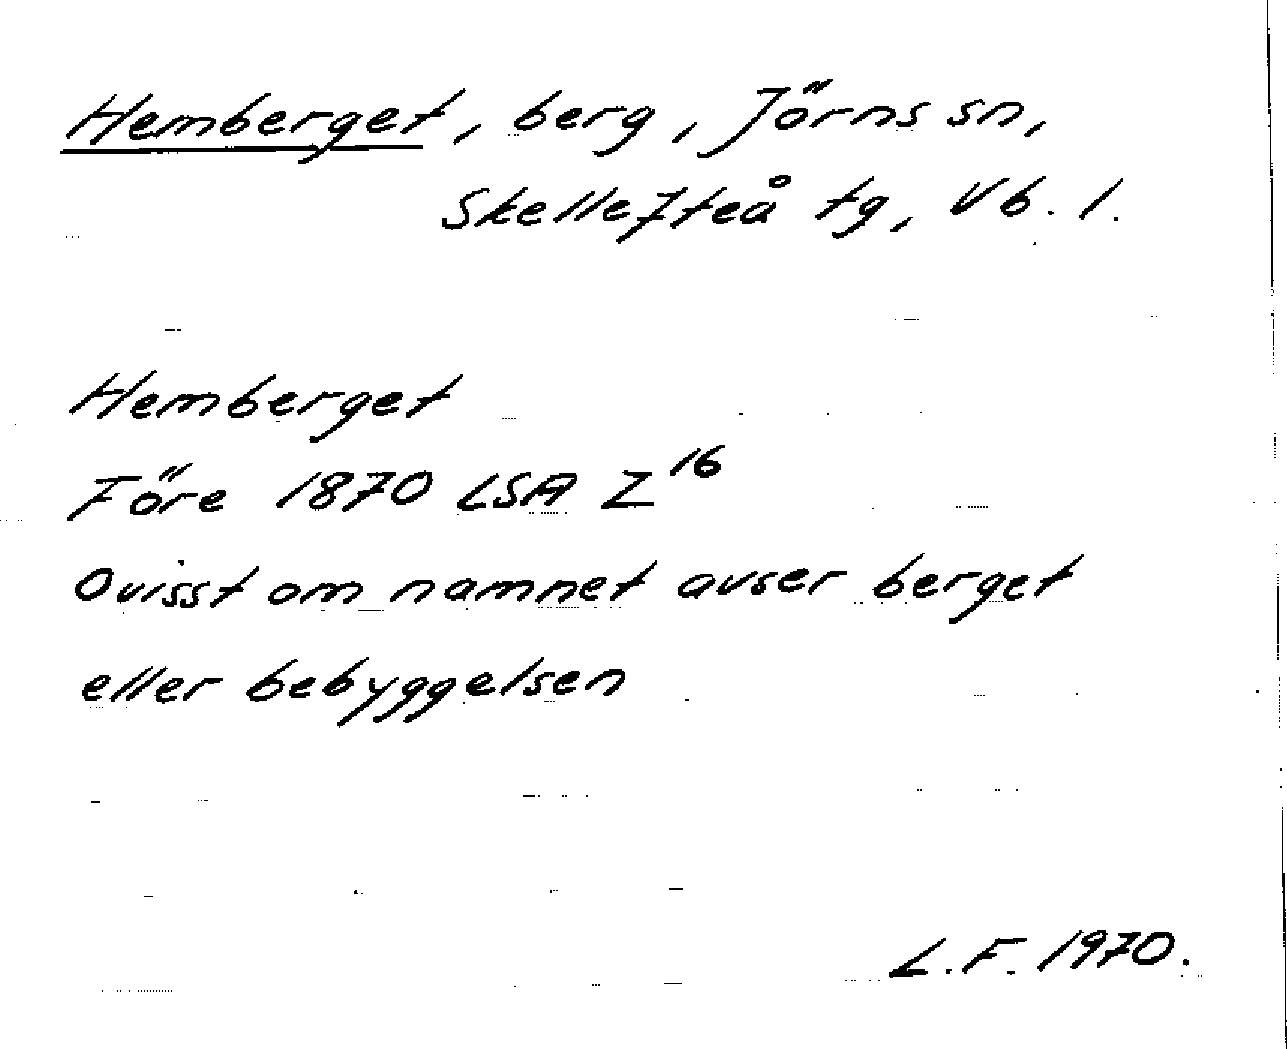 Hemberget, berg, Jörns sn,
Skellefteå tg, Vb. l.
Hemberget
Före 1870 LSA Z16
Ovisst om namnet avser berget
eller bebyggelsen
L.F. 1970.